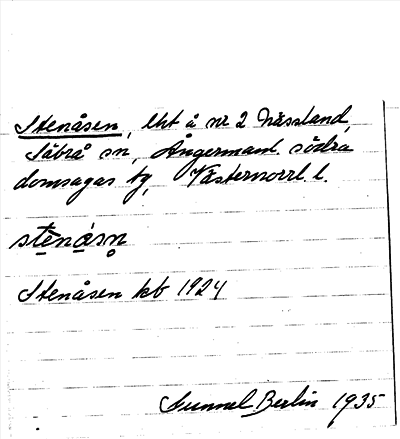 Stenåsen, lht å nr 2 Nässland,
Säbrå sn, Ångermanl. södra
domsagas tg, Västernorrl. l.
stenåsn̥
Stenåsen kb 1924
Gunnel Berlin 1935